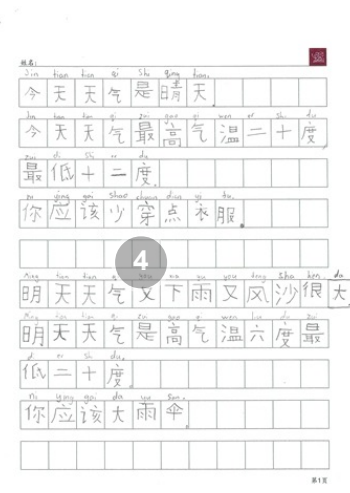 姓名:
jin tian tian qi shi qing tian.
今天天气是晴天.
jin tian tian qi zui gao qi wen er shi du
今天天气最高气温二十度
zui di shi er du
最低十二度.
ni ying gai shao chuan dian yi fu.
你应该少穿点衣服.
ming tian tian qi you xia yu you feng sha hen da
明天天气又下雨又风沙很大
ming tian tian qi gao qi wen liu du zui
明天天气是高气温六度最
di er shi du.
低二十度.
ni ying gai da yu san.
你应该大雨伞.
4
第1页